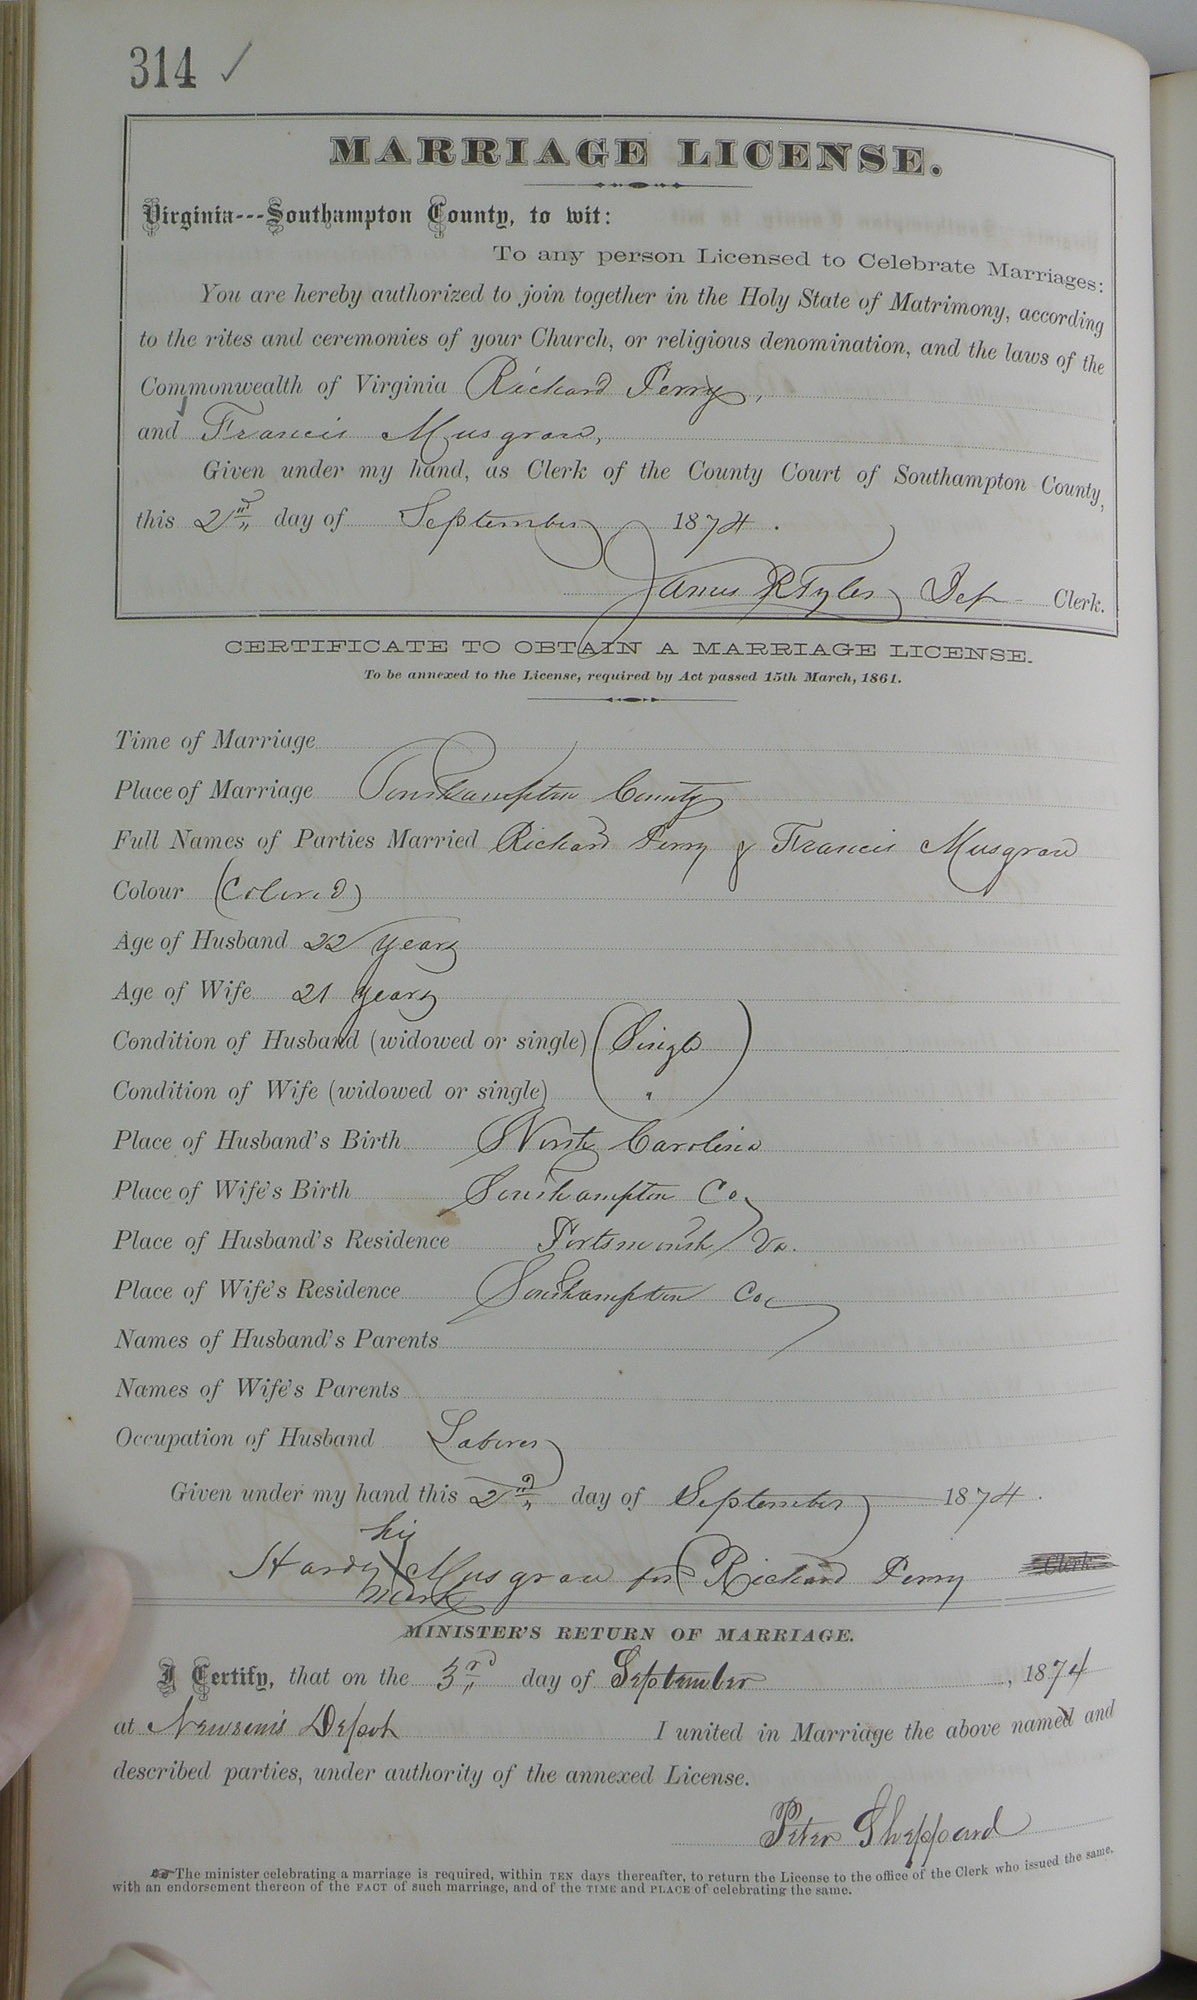 314 ✓
MARRIAGE LICENSE.
Virginia---Southampton County, to wit:
To any person Licensed to Celebrate Marriages:
You are hereby authorized to join together in the Holy State of Matrimony, according
to the rites and ceremonies of your Church, or religious denomination, and the laws of the
Commonwealth of Virginia Richard Perry,
and Francis Musgrave,
Given under my hand, as Clerk of the County Court of Southampton County,
this 2nd day of September 1874.
James R Tyler Dep Clerk.
CERTIFICATE TO OBTAIN A MARRIAGE LICENSE.
To be annexed to the License, required by Act passed 15th March, 1861.
Time of Marriage
Place of Marriage Southampton County
Full Names of Parties Married Richard Perry & Francis Musgrave
Colour (Colored)
Age of Husband 22 years
Age of Wife 21 years
Condition of Husband (widowed or single) (Single)
Condition of Wife (widowed or single) "
Place of Husband's Birth North Carolina
Place of Wife's Birth Southampton Co
Place of Husband's Residence Portsmouth Va.
Place of Wife's Residence Southampton Co
Names of Husband's Parents
Names of Wife's Parents
Occupation of Husband Laborer
Given under my hand this 2nd day of September 1874.
his
Hardy X Musgrave for Richard Perry Clerk
mark
MINISTER'S RETURN OF MARRIAGE.
I Certify, that on the 3rd day of September, 1874
at Newsom's Depot I united in Marriage the above named and
described parties, under authority of the annexed License.
Peter Sheppard
The minister celebrating a marriage is required, within TEN days thereafter, to return the License to the office of the Clerk who issued the same,
with an endorsement thereon of the FACT of such marriage, and of the TIME and PLACE of celebrating the same.